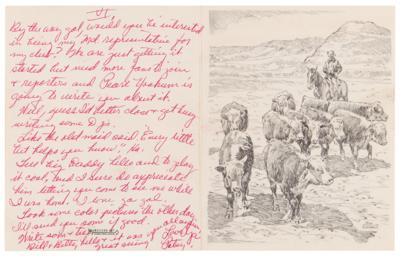 VI
By the way gal, would you be interested
in being my Md representative for
my club? We are just getting it
started but need more fans to join
& reporters and Pearl Yoakum is
going to write you about it.
Well, guess I'd better close & get busy
writing some D.Js.
Like the old maid said. Every little
bit helps you know" Ha.
Tell "Big" Daddy hello and to play
it cool, and I sure do appreciate
him letting you come to see me while
I was home. I love ya gal.
Took some color pictures the other day
I'll send you some if good.
Write soon & tell
Bill & Betty hello &
great seeing
Love ya
Patsy